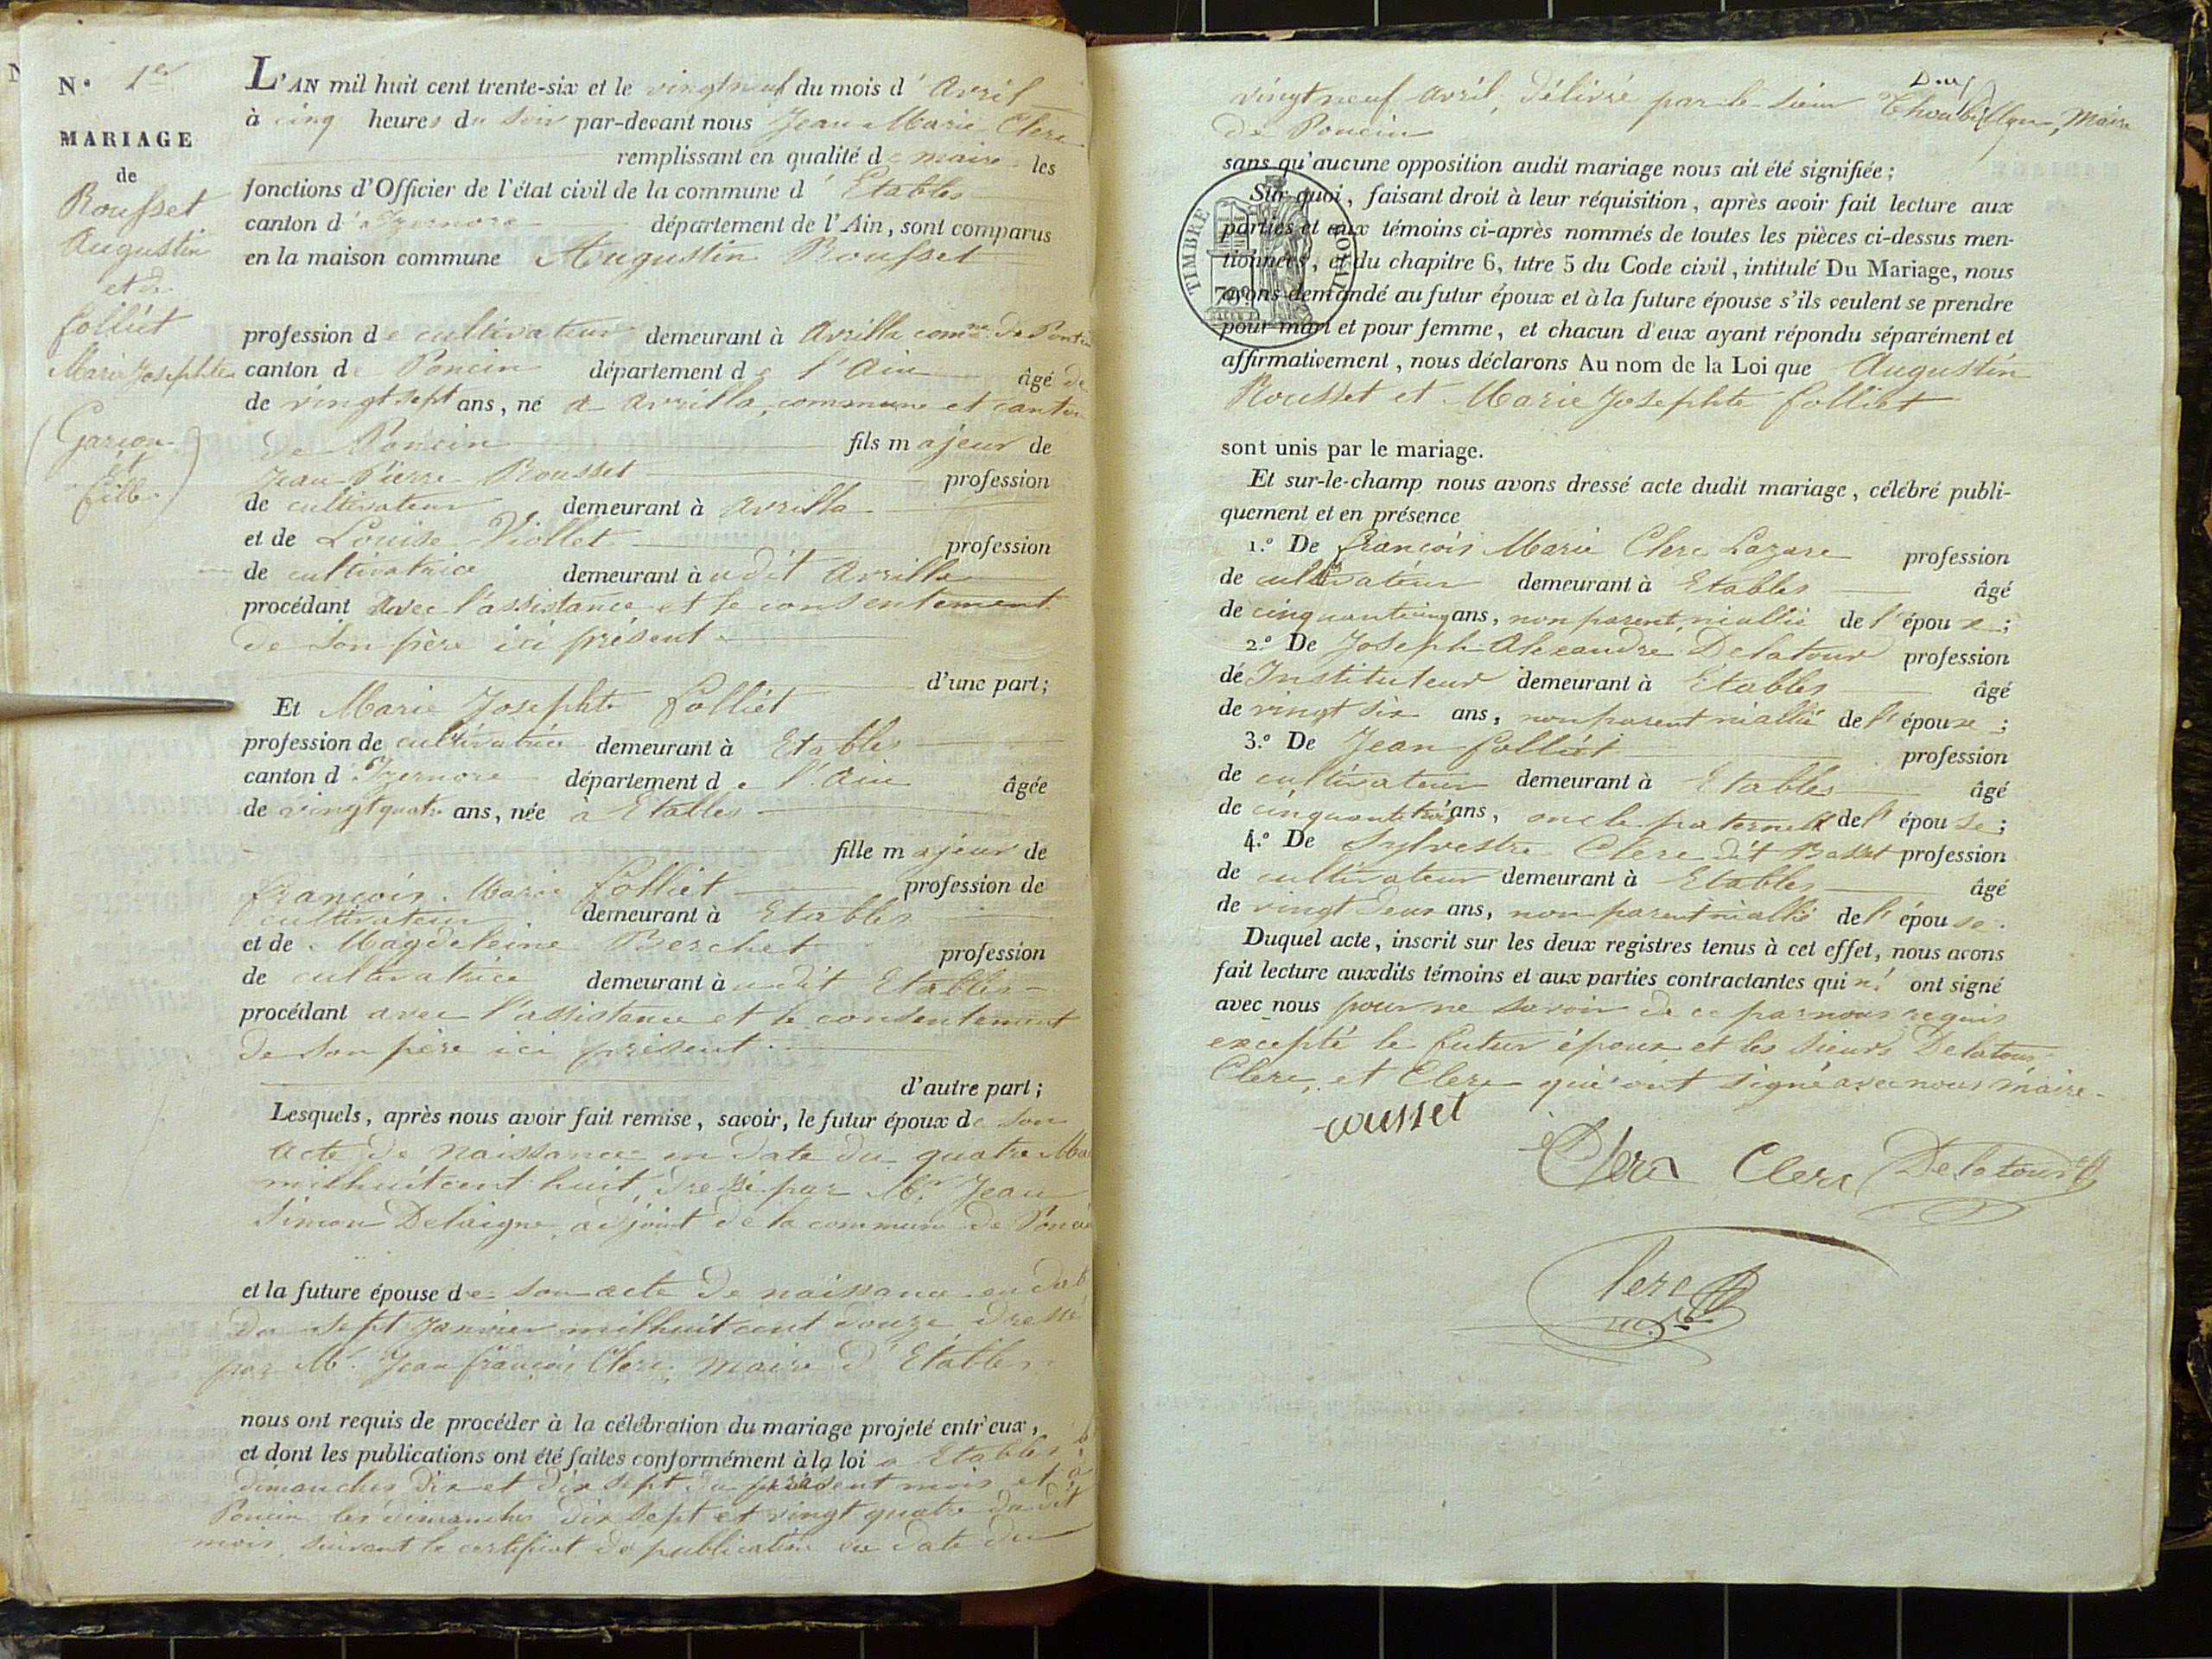 N.º 1er
MARIAGE
de
Rousset
Augustin
et de
folliét
Marie Josephte
( Garçon
et
fille )
L'AN mil huit cent trente-six et le vingt neuf du mois d' Avril
à cinq heures du soir par-devant nous Jean Marie Clerc
remplissant en qualité de maire les
fonctions d'Officier de l'état civil de la commune d' Etables
canton d'Izernore département de l'Ain, sont comparus
en la maison commune Augustin Rousset
profession de cultivateur demeurant à Avrilla comne. de Poncin
canton de Poncin département de l'Ain âgé de
de vingt sept ans, né à avrilla, commune et canton
de Poncin fils majeur de
Jean Pierre Rousset profession
de cultivateur demeurant à avrilla
et de Louise Viollet profession
de cultivatrice demeurant à udit Avrilla
procédant avec l'assistance et le consentement
de son père ici présent
d'une part;
Et Marie Josephte folliét
profession de cultivatrice demeurant à Etables
canton d'Izernore département de l'Ain âgée
de vingt quatre ans, née à Etables
fille majeur de
françois Marie folliet profession de
cultivateur demeurant à Etables
et de Magdeleine Berchet profession
de cultivatrice demeurant à udit Etables
procédant avec l'assistance et le consentement
de son père ici présent
d'autre part;
Lesquels, après nous avoir fait remise, savoir, le futur époux de son
acte de naissance en date du quatre Mai
mil huit cent huit, dressé par Mr. Jean
Simon Delaigne, adjoint de la commune de Poncin
et la future épouse de son acte de naissance en date
du sept Janvier mil huit cent douze, dressé
par Mr. Jean françois Clerc, maire d'Etables
nous ont requis de procéder à la célébration du mariage projeté entr'eux,
et dont les publications ont été faites conformément à la loi à Etables les
dimanches dix et dix sept du présent mois et à
Poncin les dimanches dix sept et vingt quatre du dit
mois, suivant le certificat de publication en date du
vingt neuf avril, délivré par le sieur Maire
de Poncin
sans qu'aucune opposition audit mariage nous ait été signifiée;
TIMBRE ROYAL
Sur quoi, faisant droit à leur réquisition, après avoir fait lecture aux
parties et aux témoins ci-après nommés de toutes les pièces ci-dessus men-
tionnées, et du chapitre 6, titre 5 du Code civil, intitulé Du Mariage, nous
avons demandé au futur époux et à la future épouse s'ils veulent se prendre
pour mari et pour femme, et chacun d'eux ayant répondu séparément et
affirmativement, nous déclarons Au nom de la Loi que Augustin
Rousset et Marie Josephte folliet
sont unis par le mariage.
Et sur-le-champ nous avons dressé acte dudit mariage, célébré publi-
quement et en présence
1.º De françois Marie Clerc Lazare profession
de cultivateur demeurant à Etables âgé
de cinquante cinq ans, non parent, ni allié de l'épouse;
2.º De Joseph Alexandre Delatour profession
de Instituteur demeurant à Etables âgé
de vingt six ans, non parent ni allié de l'épouse;
3.º De Jean folliét profession
de cultivateur demeurant à Etables âgé
de cinquante trois ans, oncle paternel de l'épouse;
4.º De Sylvestre Clerc dit Basset profession
de cultivateur demeurant à Etables âgé
de vingt deux ans, non parent ni allié de l'épouse.
Duquel acte, inscrit sur les deux registres tenus à cet effet, nous avons
fait lecture auxdits témoins et aux parties contractantes qui n' ont signé
avec nous pour ne savoir de ce par nous requis
excepté le futur époux et les sieurs Delatour
Clerc, et Clerc qui ont signé avec nous maire.
rousset
Clerc Clerc Delatour
Clerc